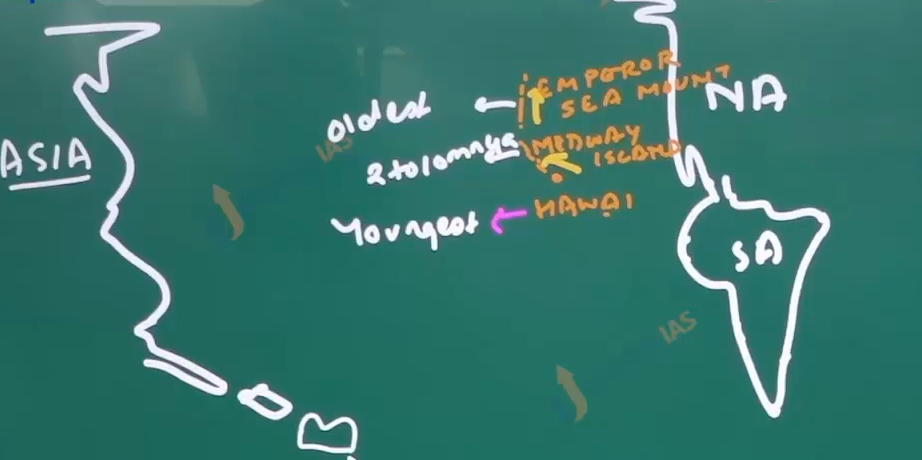 ASIA
oldest
EMPEROR
SEA MOUNT
NA
MEDWAY
ISLAND
Youngest
HAWAI
SA
IAS
IAS